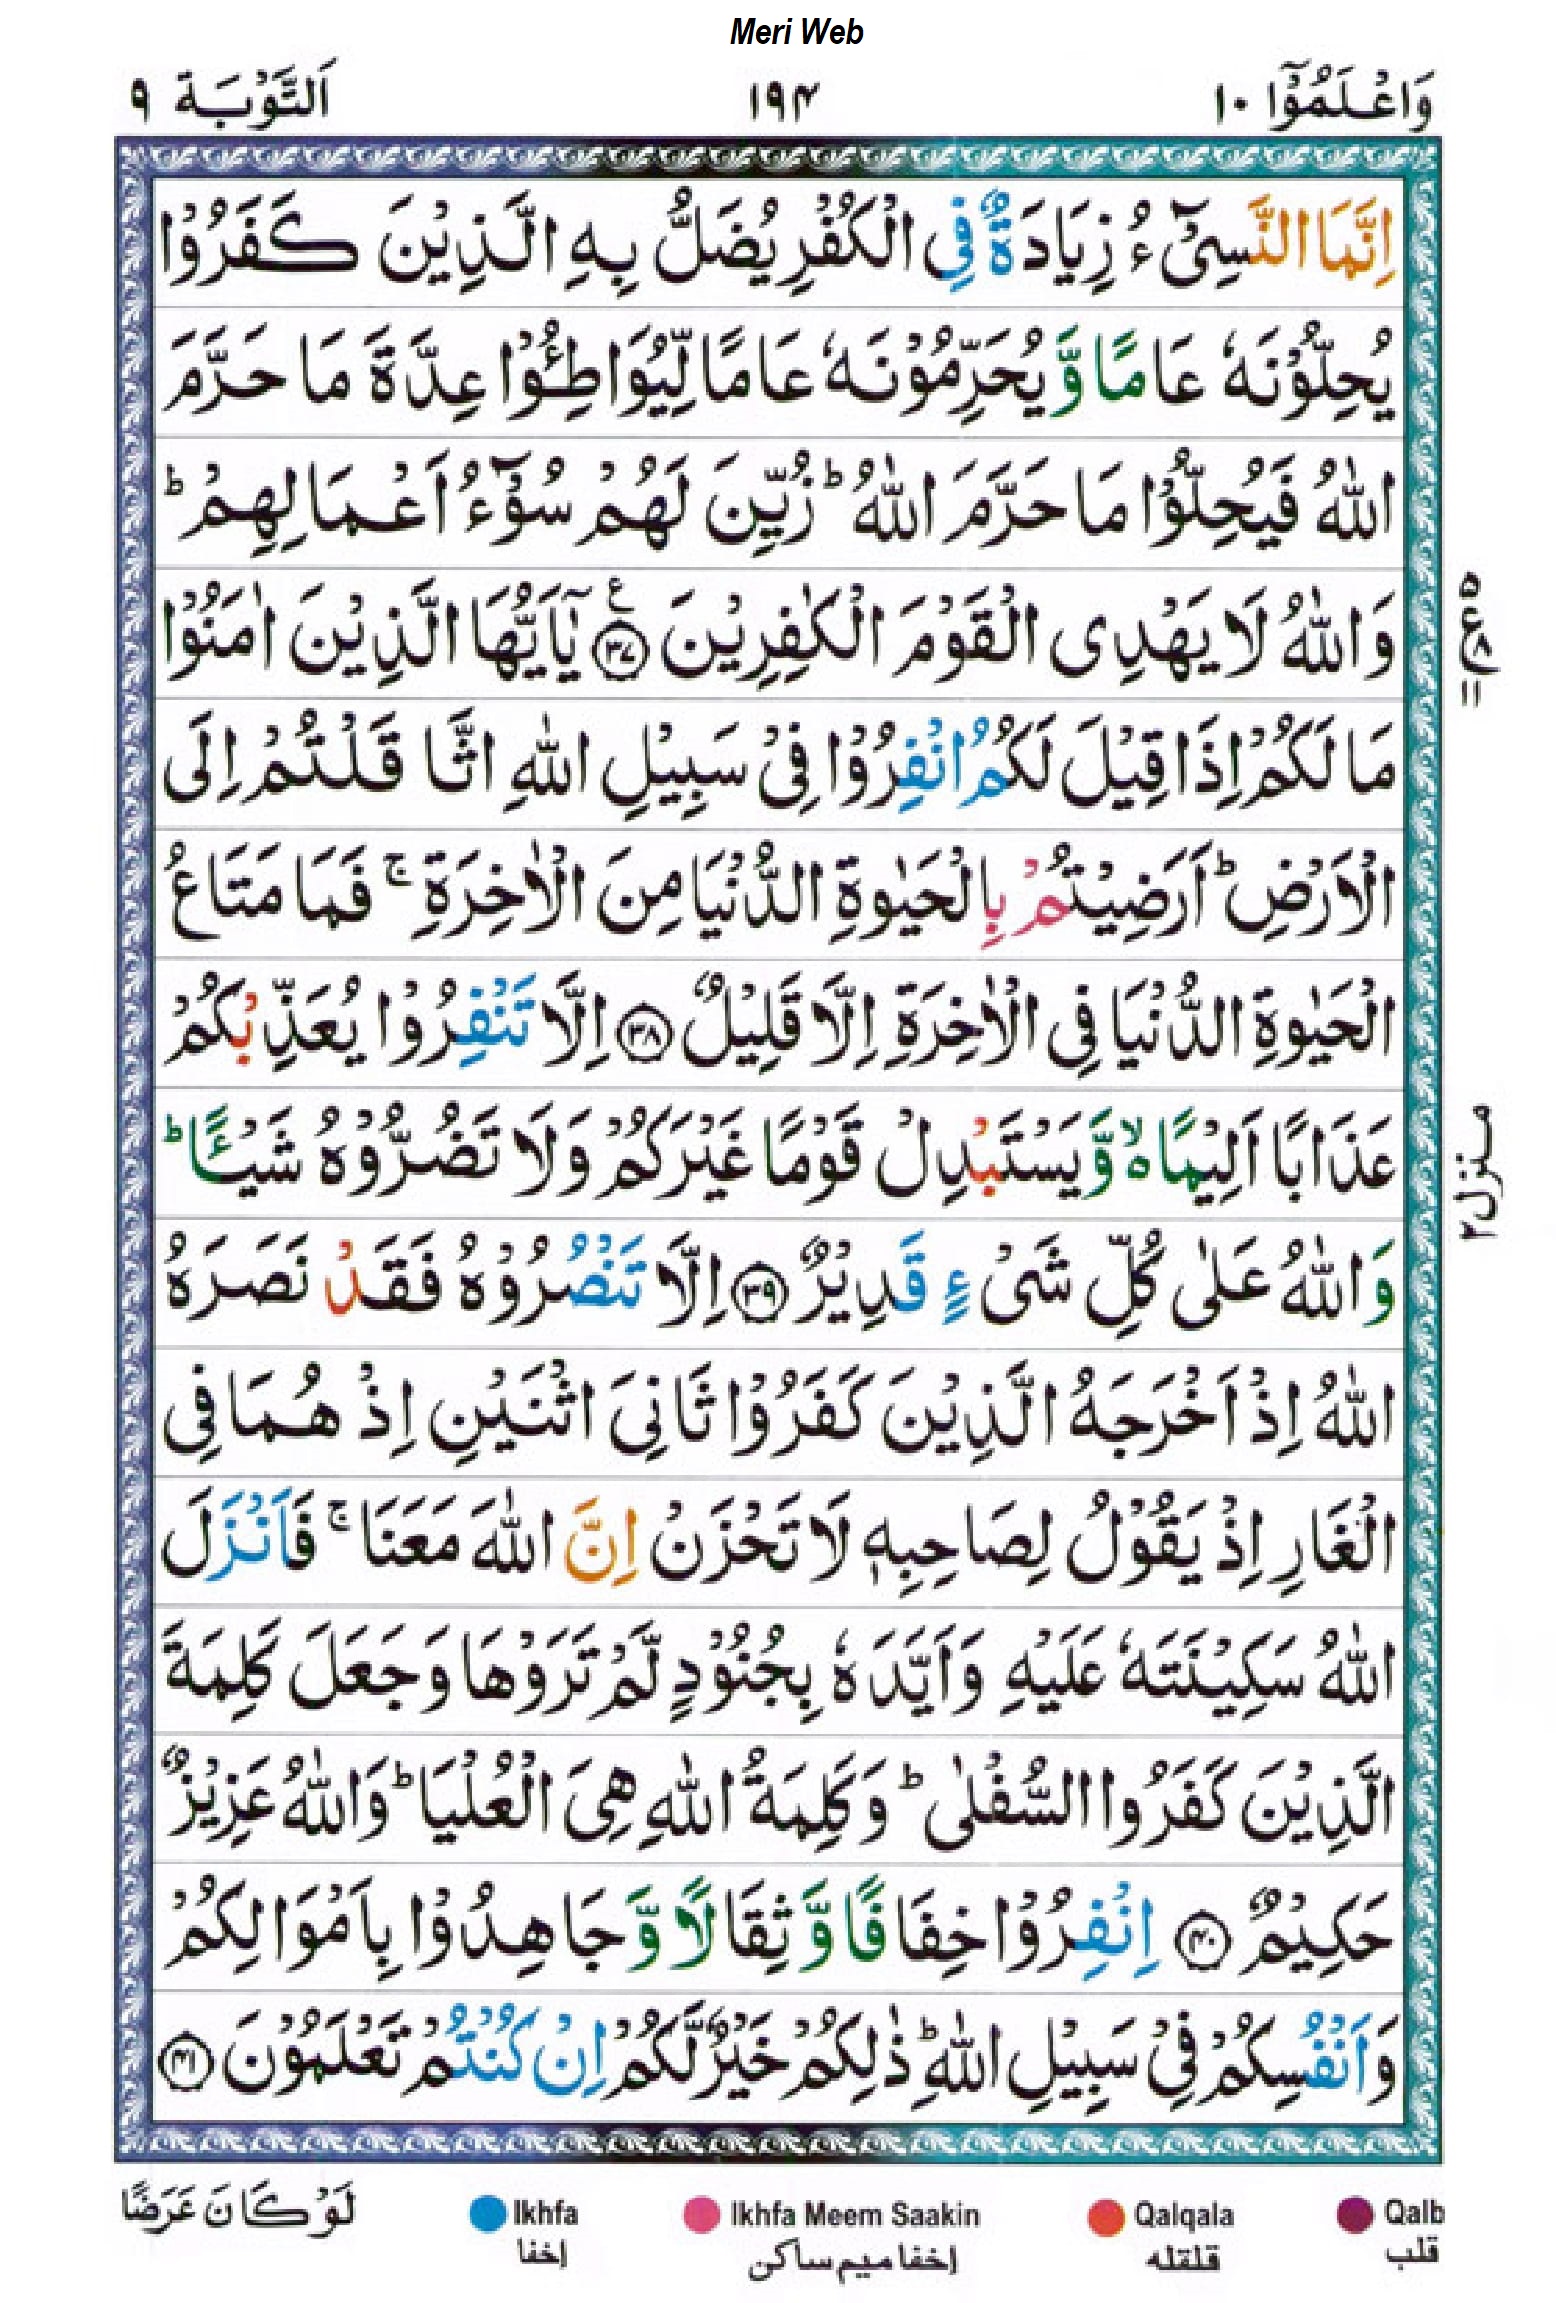 Meri Web
وَاعْلَمُوْٓا ١٠ ١٩٤ اَلتَّوْبَة ٩
اِنَّمَا النَّسِیْٓءُ زِیَادَةٌ فِی الْكُفْرِ یُضَلُّ بِهِ الَّذِیْنَ كَفَرُوْا
یُحِلُّوْنَهٗ عَامًا وَّیُحَرِّمُوْنَهٗ عَامًا لِّیُوَاطِـُٔوْا عِدَّةَ مَا حَرَّمَ
اللّٰهُ فَیُحِلُّوْا مَا حَرَّمَ اللّٰهُ ؕ زُیِّنَ لَهُمْ سُوْٓءُ اَعْمَالِهِمْ ؕ
وَاللّٰهُ لَا یَهْدِی الْقَوْمَ الْكٰفِرِیْنَ ۟ع ٣٧ یٰۤاَیُّهَا الَّذِیْنَ اٰمَنُوْا
مَا لَكُمْ اِذَا قِیْلَ لَكُمُ انْفِرُوْا فِیْ سَبِیْلِ اللّٰهِ اثَّا قَلْتُمْ اِلَی
الْاَرْضِ ؕ اَرَضِیْتُمْ بِالْحَیٰوةِ الدُّنْیَا مِنَ الْاٰخِرَةِ ۚ فَمَا مَتَاعُ
الْحَیٰوةِ الدُّنْیَا فِی الْاٰخِرَةِ اِلَّا قَلِیْلٌ ٣٨ اِلَّا تَنْفِرُوْا یُعَذِّبْكُمْ
عَذَابًا اَلِیْمًا ۙ۬ وَّیَسْتَبْدِلْ قَوْمًا غَیْرَكُمْ وَلَا تَضُرُّوْهُ شَیْـًٔا ؕ
وَاللّٰهُ عَلٰی كُلِّ شَیْءٍ قَدِیْرٌ ٣٩ اِلَّا تَنْصُرُوْهُ فَقَدْ نَصَرَهُ
اللّٰهُ اِذْ اَخْرَجَهُ الَّذِیْنَ كَفَرُوْا ثَانِیَ اثْنَیْنِ اِذْ هُمَا فِی
الْغَارِ اِذْ یَقُوْلُ لِصَاحِبِهٖ لَا تَحْزَنْ اِنَّ اللّٰهَ مَعَنَا ۚ فَاَنْزَلَ
اللّٰهُ سَكِیْنَتَهٗ عَلَیْهِ وَاَیَّدَهٗ بِجُنُوْدٍ لَّمْ تَرَوْهَا وَجَعَلَ كَلِمَةَ
الَّذِیْنَ كَفَرُوا السُّفْلٰی ؕ وَكَلِمَةُ اللّٰهِ هِیَ الْعُلْیَا ؕ وَاللّٰهُ عَزِیْزٌ
حَكِیْمٌ ٤٠ اِنْفِرُوْا خِفَافًا وَّثِقَالًا وَّجَاهِدُوْا بِاَمْوَالِكُمْ
وَاَنْفُسِكُمْ فِیْ سَبِیْلِ اللّٰهِ ؕ ذٰلِكُمْ خَیْرٌ لَّكُمْ اِنْ كُنْتُمْ تَعْلَمُوْنَ ٤١
٥
ع
٨
١١
منزل ٢
لَوْ كَانَ عَرَضًا
Ikhfa
إخفا
Ikhfa Meem Saakin
إخفا ميم ساكن
Qalqala
قلقله
Qalb
قلب